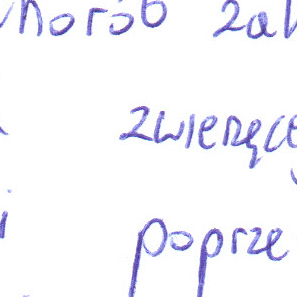 chorób zak
zwierzęce
i poprze